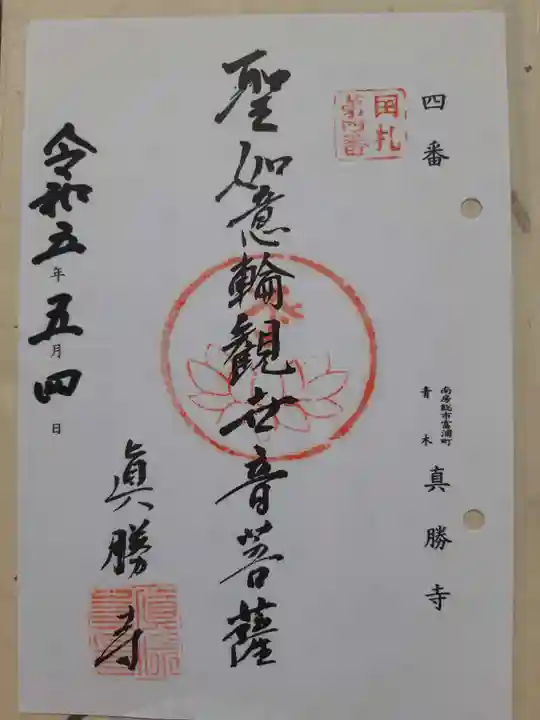 四番
国札
第四番
南房総市富浦町
青木
真勝寺
聖如意輪觀世音菩薩
令和五年五月四日
眞勝寺